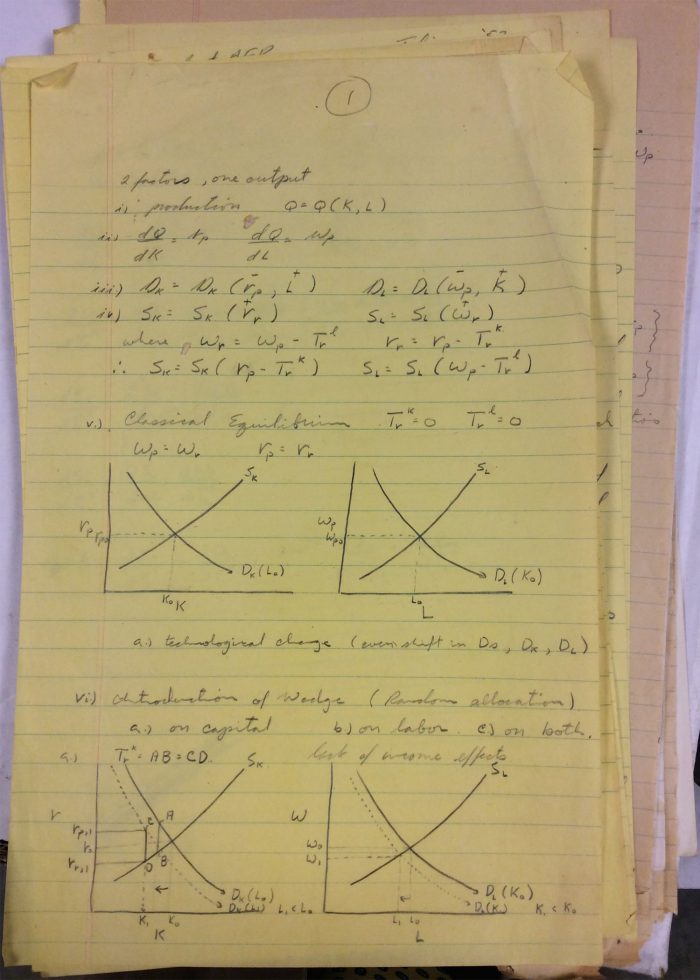 1
2 factors, one output
i) production Q = Q(K, L)
ii) dQ/dK = rp dQ/dL = wp
iii) DK = DK (r̄p, L⁺) DL = DL (w̄p, K⁺)
iv) SK = SK (r⁺r) SL = SL (w⁺r)
where wr = wp - Tr^l rr = rp - Tr^k
∴ SK = SK (rp - Tr^k) SL = SL (wp - Tr^l)
v.) Classical Equilibrium Tr^k = 0 Tr^l = 0
wp = wr rp = rr
SK SL
wp
rp rp0 wp0
DK(L0) DL(K0)
K0 K L0 L
a.) technological change (even shift in DK, DL)
vi) Introduction of Wedge (Random allocation)
a.) on capital b.) on labor c.) on both.
a.) Tr^k = AB = CD. lack of income effects
SK SL
r C A W
rp1
r0 W0
rr1 D B W1
DK(L0) DL(K0)
DK(L1) L1 < L0 DL(K1) K1 < K0
K1 K0 L1 L0
K L